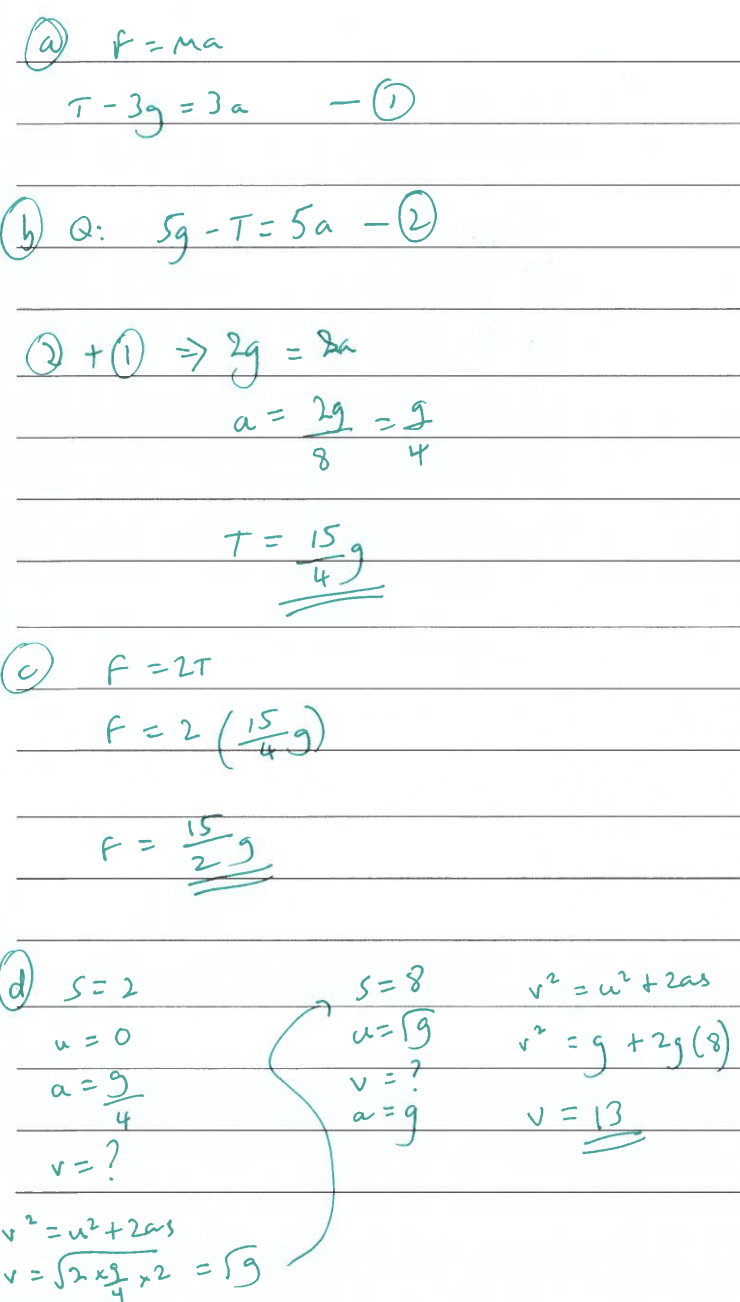 (a) F = ma
T - 3g = 3a — ①
(b) Q: 5g - T = 5a — ②
② + ① ⇒ 2g = 8a
a = 2g/8 = g/4
T = 15/4 g
(c) F = 2T
F = 2 (15/4 g)
F = 15/2 g
(d) S = 2
u = 0
a = g/4
v = ?
v² = u² + 2as
v = √(2 × g/4 × 2) = √g
S = 8
u = √g
v = ?
a = g
v² = u² + 2as
v² = g + 2g(8)
v = 13